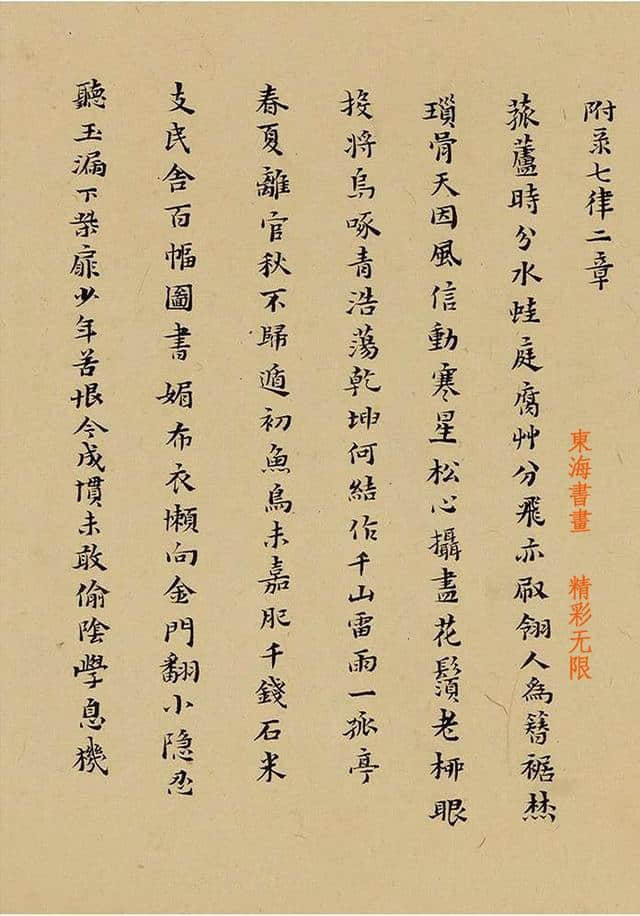 附彔七律二章
菰蘆時分水蛙庭腐艸分飛亦刷翎人為簪裾
瑣骨天因風信動寒星松心攝盡花鬚老柳眼
投將鳥啄青浩蕩乾坤何結作千山雷雨一孤亭
春夏離官秋不歸遁初魚鳥未嘉肥千錢石米
支民舍百幅圖書媚布衣懶向金門翻小隐忍
聽玉漏下柴扉少年苦恨今成慣未敢偷陰學息機
東海書畫 精彩无限